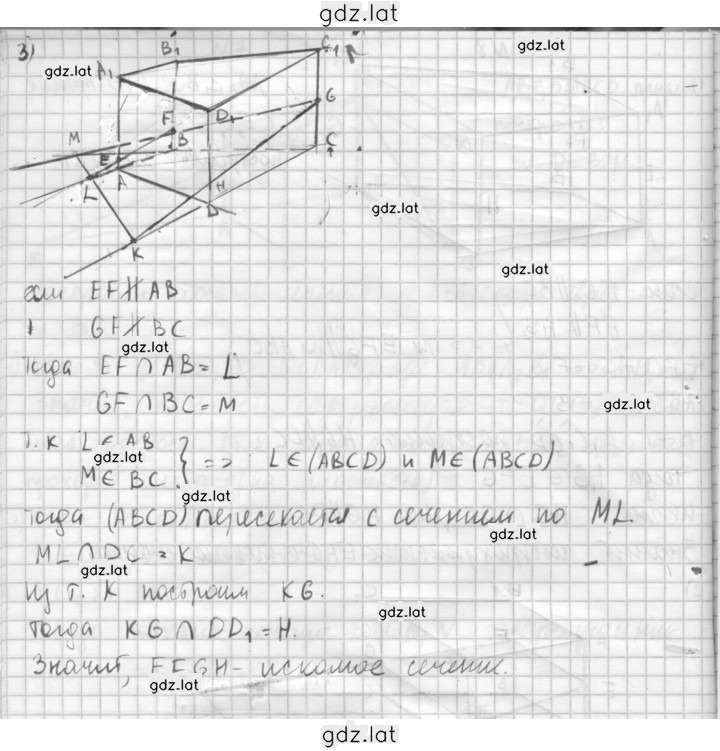 gdz.lat
3)
B₁
C₁
gdz.lat
gdz.lat
A₁
G
F
D₁
M
B
C
E
A
L
H
gdz.lat
D
K
gdz.lat
если EF∦AB
GF∦BC
gdz.lat
тогда EF∩AB = L
GF∩BC = M
gdz.lat
т.к L∈AB
gdz.lat
M∈BC } => L∈(ABCD) и M∈(ABCD)
gdz.lat
тогда (ABCD) пересекается с сечением по ML
gdz.lat
ML∩DC = K
gdz.lat
из т. K построим KG.
gdz.lat
тогда KG∩DD₁ = H.
Значит, EFGH - искомое сечение.
gdz.lat
gdz.lat